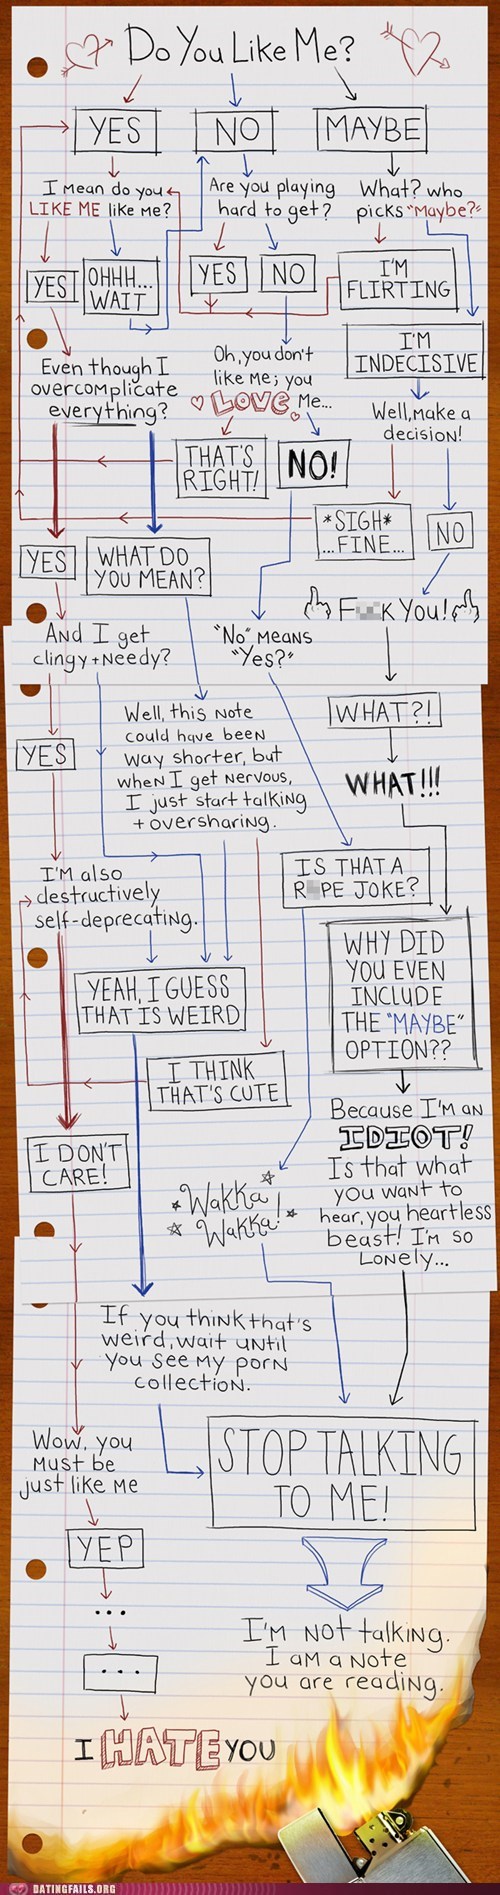 Do You Like Me?
YES
NO
MAYBE
I Mean do you
LIKE ME like me?
Are you playing
hard to get?
What? who
picks "Maybe?"
YES
OHHH...
WAIT
YES
NO
I'M
FLIRTING
I'M
INDECISIVE
Even though I
overcomplicate
everything?
Oh, you don't
like me; you
LOVE Me...
Well, make a
decision!
THAT'S
RIGHT!
NO!
*SIGH*
...FINE...
NO
YES
WHAT DO
YOU MEAN?
F K You!
And I get
clingy + needy?
"No" Means
"Yes?"
WHAT?!
YES
Well, this note
could have been
way shorter, but
when I get nervous,
I just start talking
+ oversharing.
WHAT!!!
IS THAT A
R PE JOKE?
I'm also
destructively
self-deprecating.
WHY DID
YOU EVEN
INCLUDE
THE "MAYBE"
OPTION??
YEAH, I GUESS
THAT IS WEIRD
I THINK
THAT'S CUTE
Because I'm an
IDIOT!
Is that what
you want to
hear, you heartless
beast! I'm so
Lonely...
I DON'T
CARE!
Wakka
Wakka!
If you think that's
weird, wait until
you see my porn
collection.
Wow, you
Must be
just like Me
STOP TALKING
TO ME!
YEP
...
...
I'm not talking.
I am a note
you are reading.
I HATE YOU
DATINGFAILS.ORG